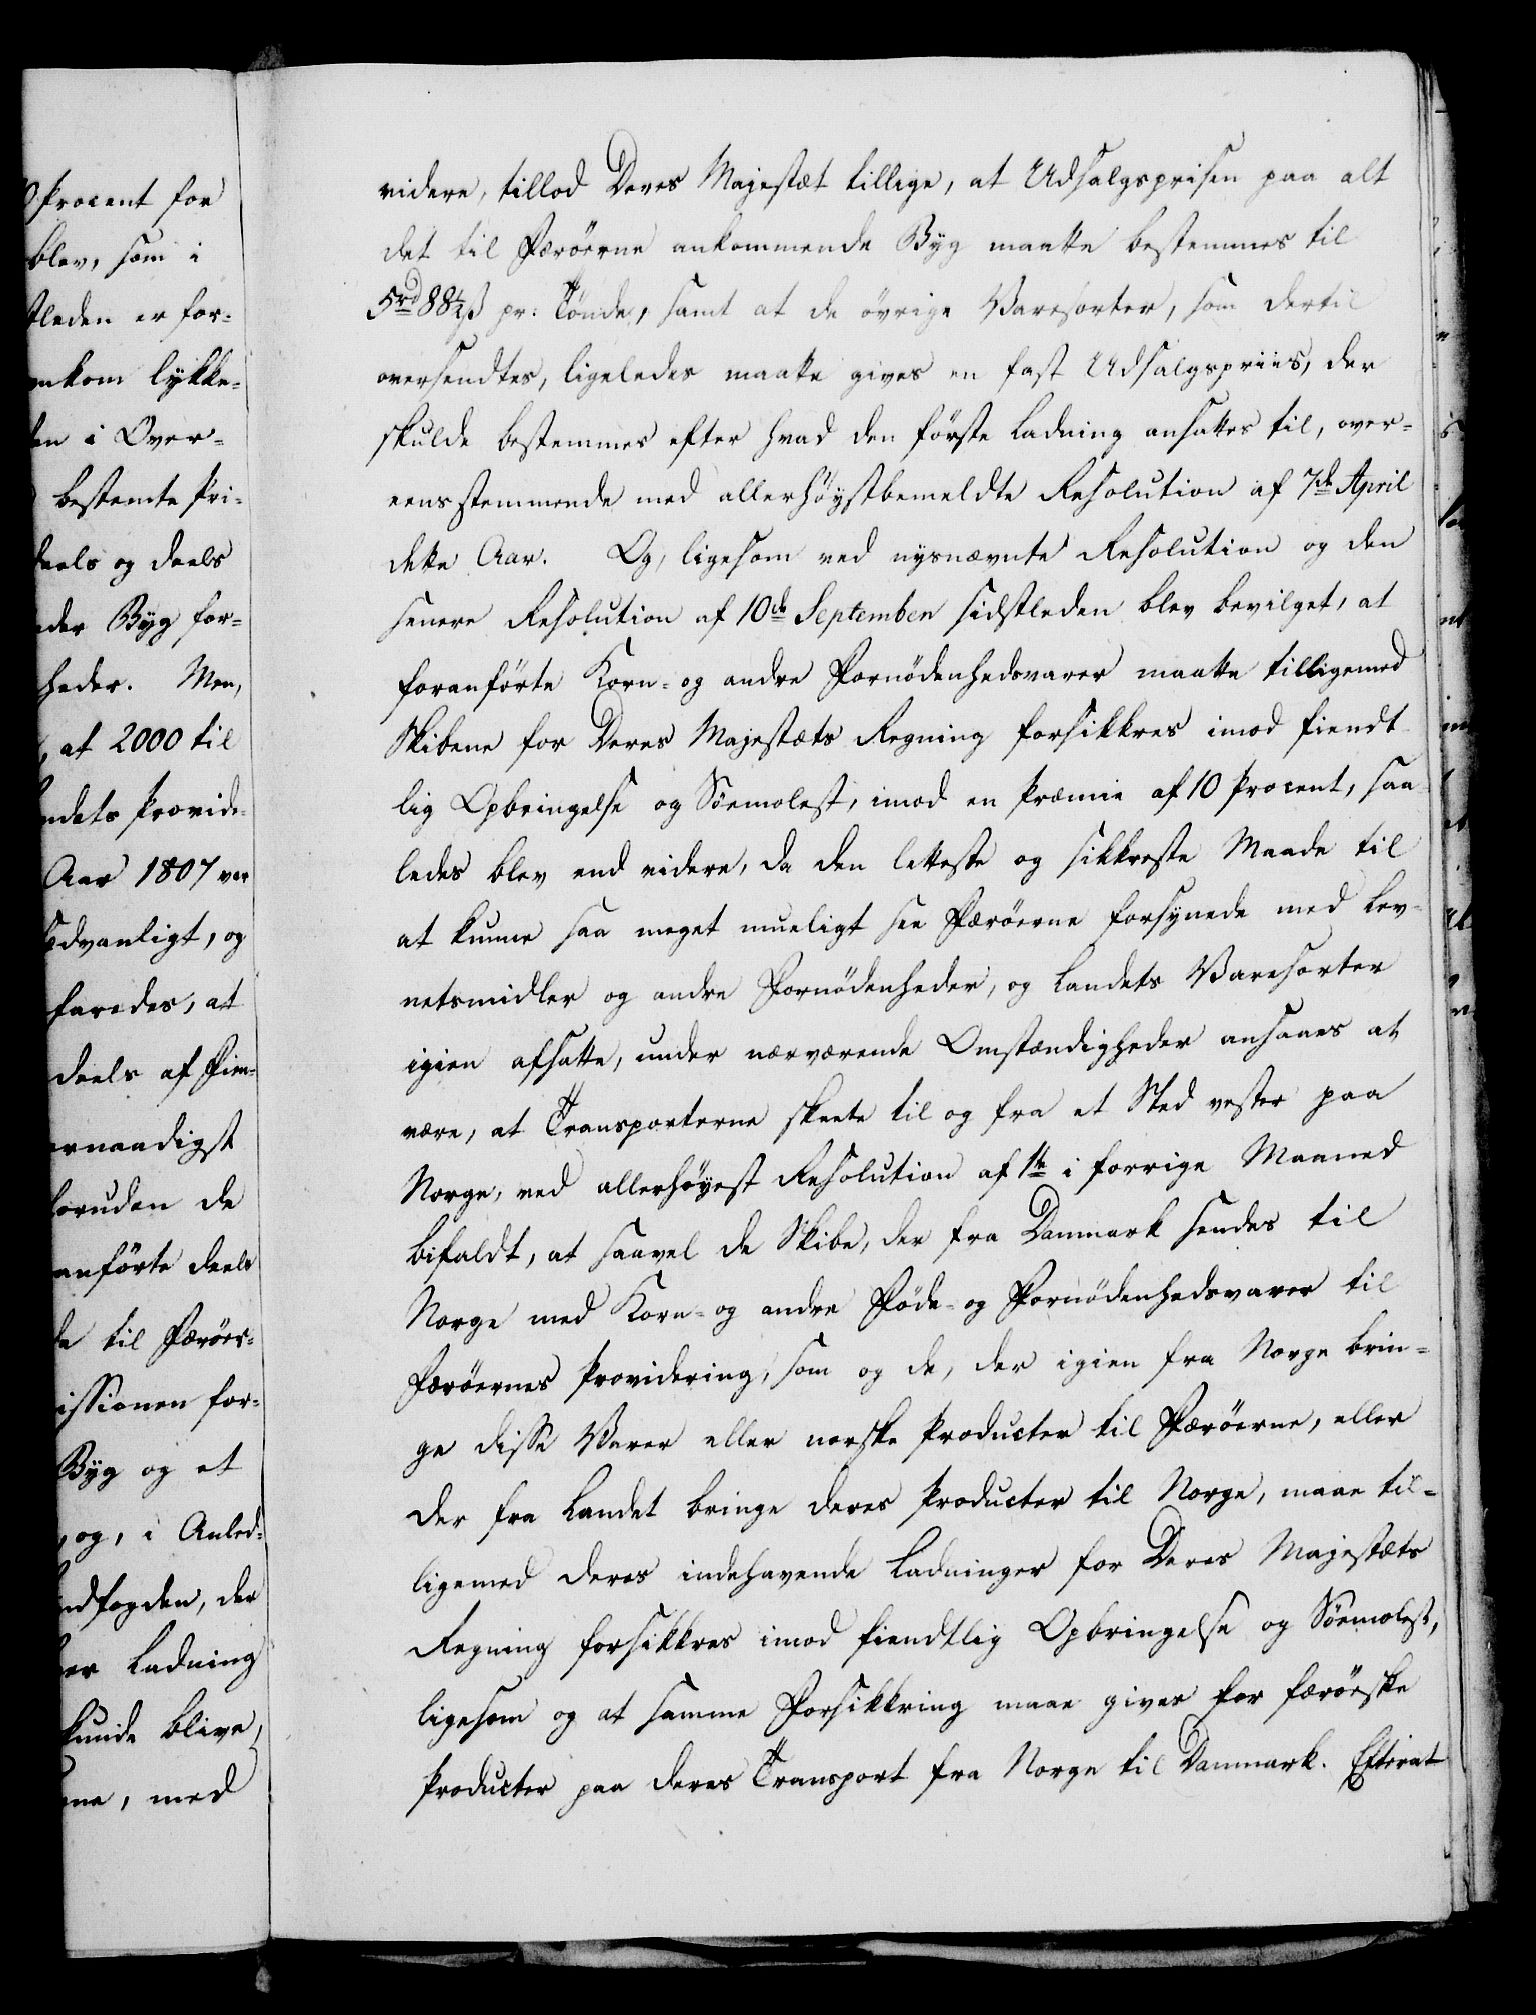 Procent for
blev, som i
leden er for-
ankom lykke-
en i Over-
bestemte Pri-
deels og deels
der Byg for-
heder. Men,
, at 2000 til
ndets Provide-
Aar 1807 var
sædvanligt, og
faredes, at
deels af Fien-
ernaadigst
foruden de
anførte deels
de til Færøes-
issionen for-
Byg og et
, og, i Anled-
ndfogden, der
er Ladning
kunde blive,
ne, med
videre, tillod Deres Majestæt tillige, at Udsalgsprisen paa alt
det til Færöerne ankommende Byg maatte bestemmes til
5rd 88½ß pr: Tönde, samt at de övrige Varesorter, som dertil
oversendtes, ligeledes maatte gives en fast Udsalgspriis, der
skulde bestemmes efter hvad den förste Ladning ansattes til, over-
eensstemmende med allerhöystbemeldte Resolution af 7de April
dette Aar. Og, ligesom ved nysnævnte Resolution og den
senere Resolution af 10de September sidstleden blev bevilget, at
foranförte Korn- og andre Fornödenhedsvarer maatte tilligemed
Skibene for Deres Majestæts Regning forsikkres imod fiendt-
lig Opbringelse og Söemolest, imod en Præmie af 10 Procent, saa-
ledes blev end videre, da den letteste og sikkreste Maade til
at kunne saa meget mueligt see Færöerne forsynede med Lev-
netsmidler og andre Fornödenheder, og Landets Varesorter
igien afsatte, under nærværende Omstændigheder ansaaes at
være, at Transporterne skeete til og fra et Sted vester paa
Norge, ved allerhöyest Resolution af 1te i forrige Maaned
bifaldt, at saavel de Skibe, der fra Danmark sendes til
Norge med Korn- og andre Föde- og Fornödenhedsvarer til
Færöernes Providering, som og de, der igien fra Norge brin-
ge disse Varer eller norske Producter til Færöerne, eller
der fra Landet bringe deres Producter til Norge, maae til-
ligemed deres indehavende Ladninger for Deres Majestæts
Regning forsikkres imod fiendtlig Opbringelse og Söemolest,
ligesom og at samme Forsikkring maae gives for færöeske
Producter paa deres Transport fra Norge til Danmark. Efterat